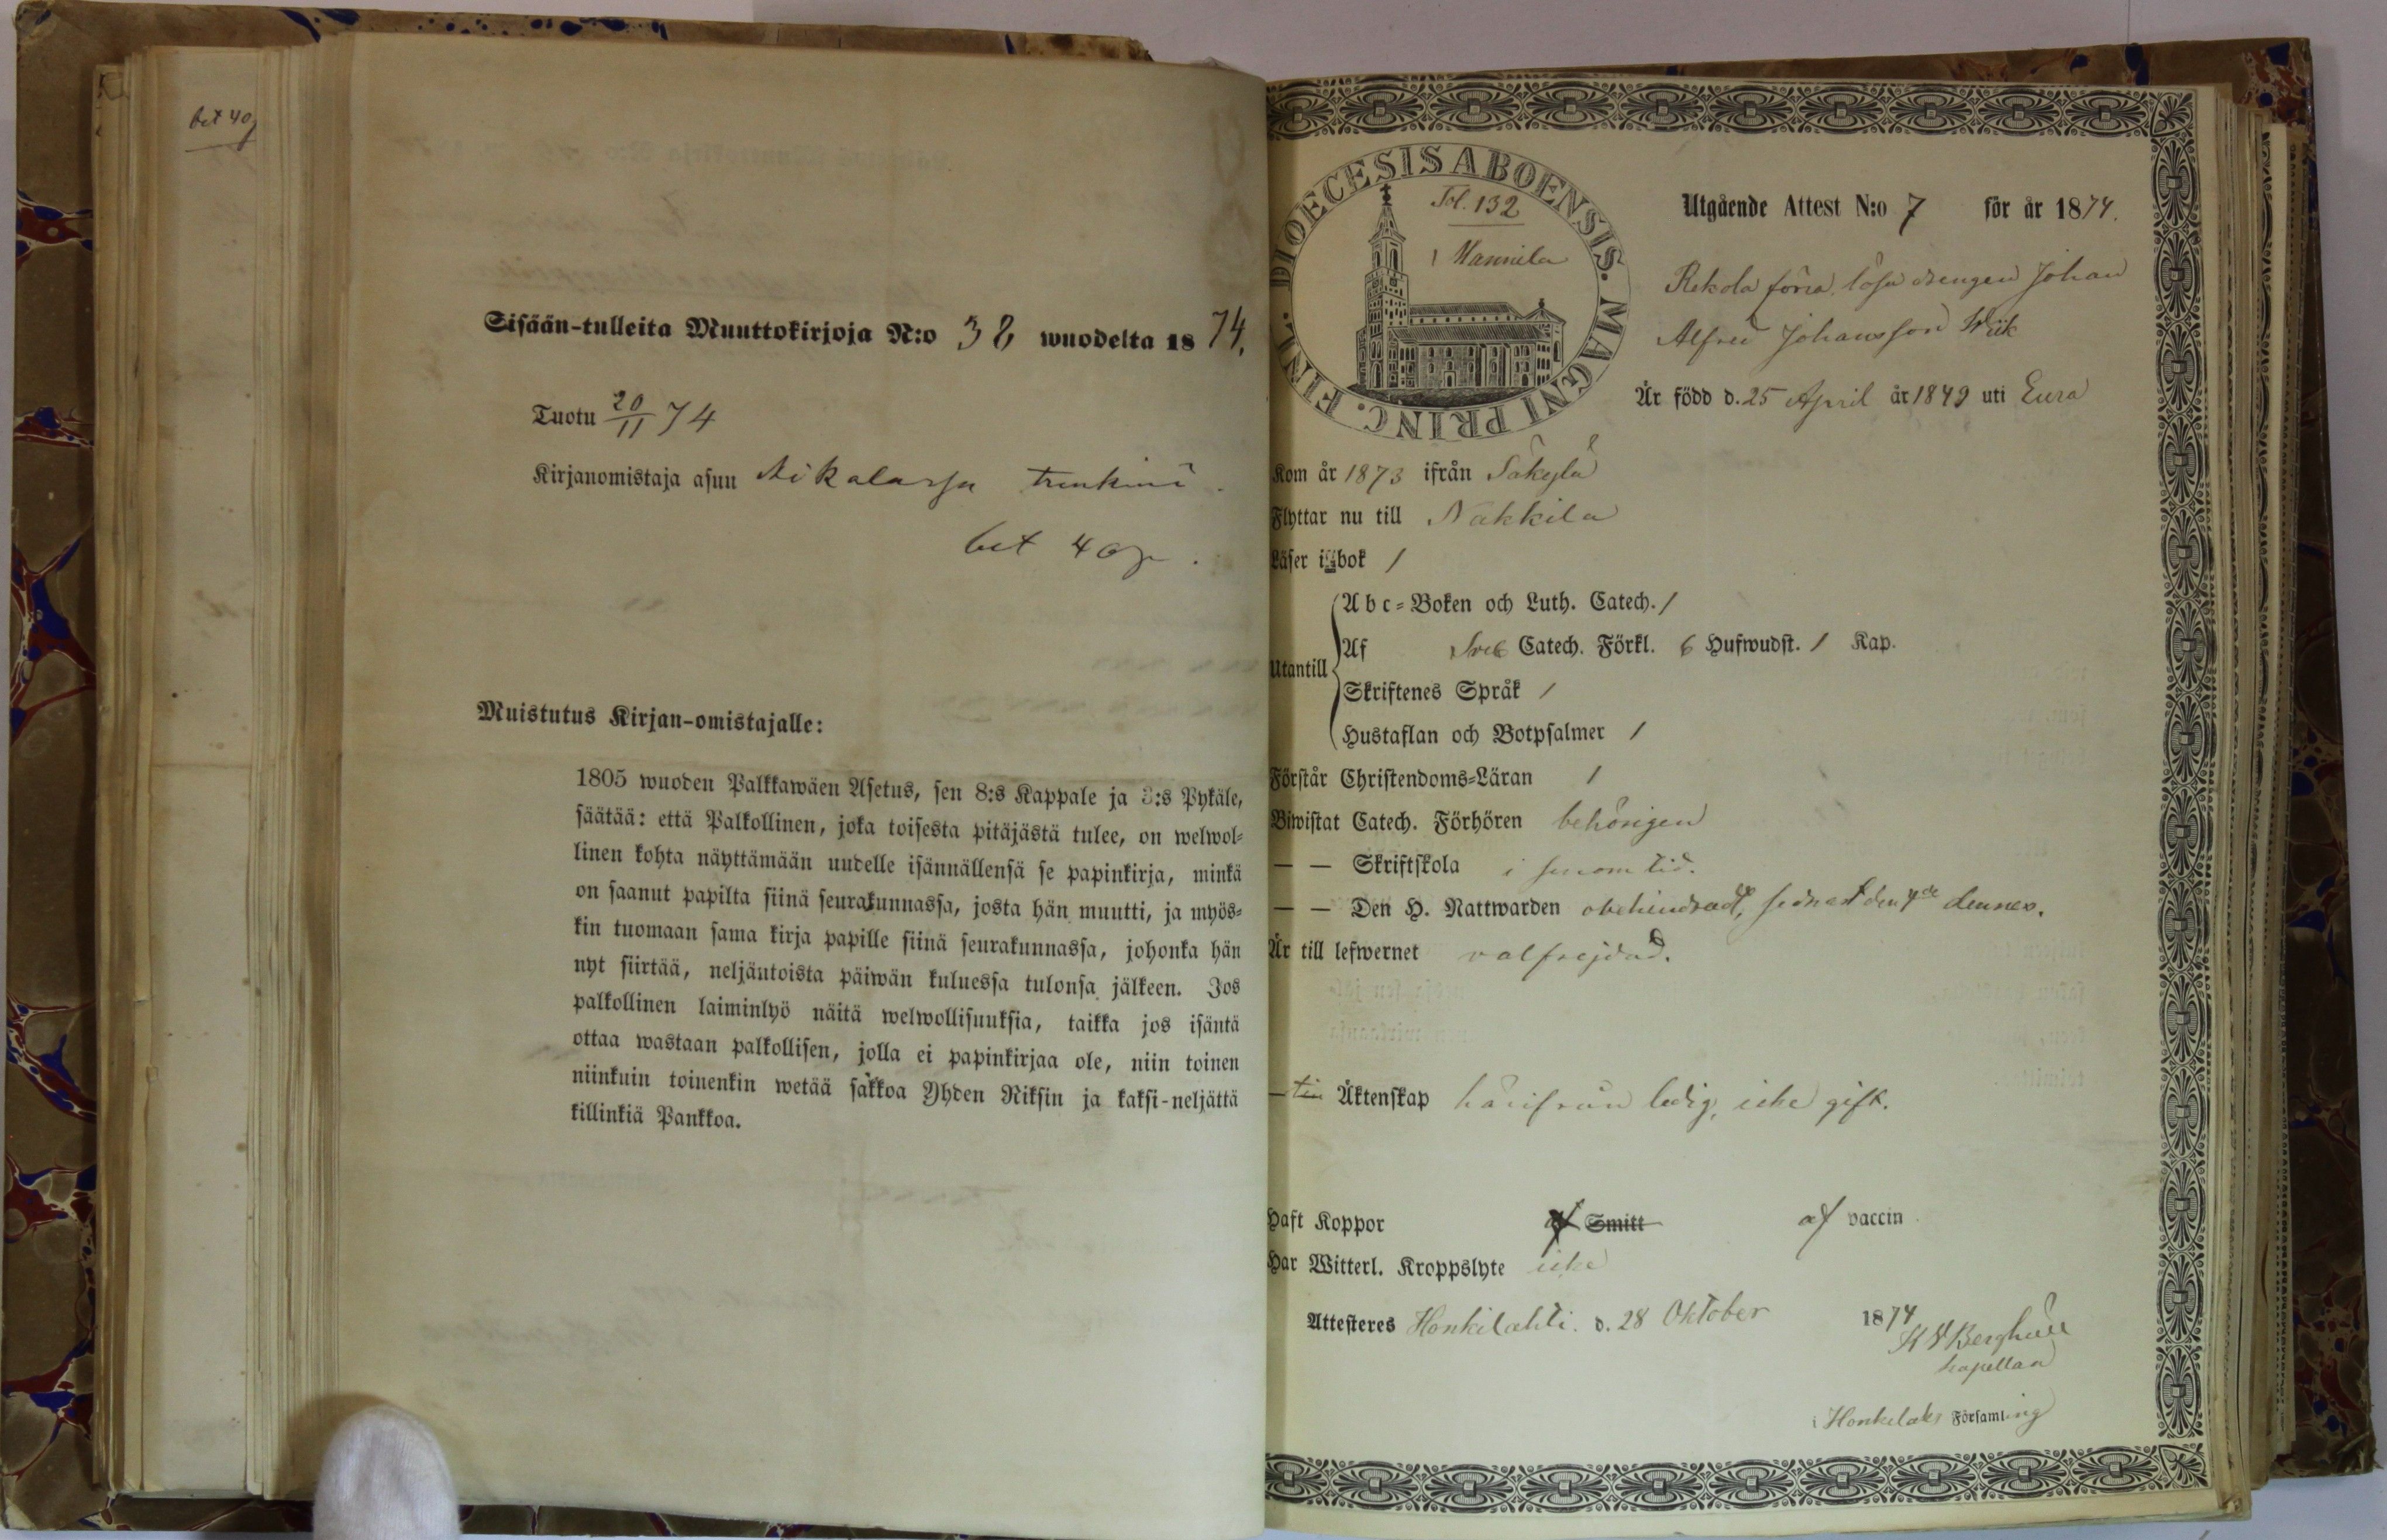 bet 40
Sisään-tulleita Muuttokirjoja N:o 38 wuodelta 1874.
Tuotu 20/11 74
Kirjanomistaja asuu
bet 40 p.
Muistutus Kirjan-omistajalle:
1805 wuoden Palkkawäen Asetus, sen 8:s Kappale ja 3:s Pykäle,
säätää: että Palkollinen, joka toisesta pitäjästä tulee, on welwol-
linen kohta näyttämään uudelle isännällensä se papinkirja, minkä
on saanut papilta siinä seurakunnassa, josta hän muutti, ja myös-
kin tuomaan sama kirja papille siinä seurakunnassa, johonka hän
nyt siirtää, neljäntoista päiwän kuluessa tulonsa jälkeen. Jos
palkollinen laiminlyö näitä welwollisuuksia, taikka jos isäntä
ottaa wastaan palkollisen, jolla ei papinkirjaa ole, niin toinen
niinkuin toinenkin wetää sakkoa Yhden Riksin ja kaksi-neljättä
killinkiä Pankkoa.
DIOECESIS ABOENSIS. MAGNI PRINC. FINL.
Fol. 132
Mannila
Utgående Attest N:o 7 för år 1874.
Rekola förra lösa drengen Johan
Alfred Johansson Wiik
Är född d. 25 April år 1849 uti Eura
Kom år 1873 ifrån Säkylä
Flyttar nu till Nakkila
Läser i bok /
Utantill
Abc=Boken och Luth. Catech. /
Af Sveb Catech. Förkl. 6 Hufwudst. / Kap.
Skriftenes Språk /
Hustaflan och Botpsalmer /
Förstår Christendoms=Läran /
Biwistat Catech. Förhören behörigen
— — Skriftskola i sinom tid.
— — Den H. Nattwarden obehindradt, sednast den 4de dennes.
Är till lefwernet välfrejdad.
— till Äktenskap härifrån ledig, icke gift.
Haft Koppor af Smitt af vaccin
Har Witterl. Kroppslyte icke
Attesteres Honkilahti. d. 28 Oktober 1874
Berghäll
kapellan
i Honkilaks Församling